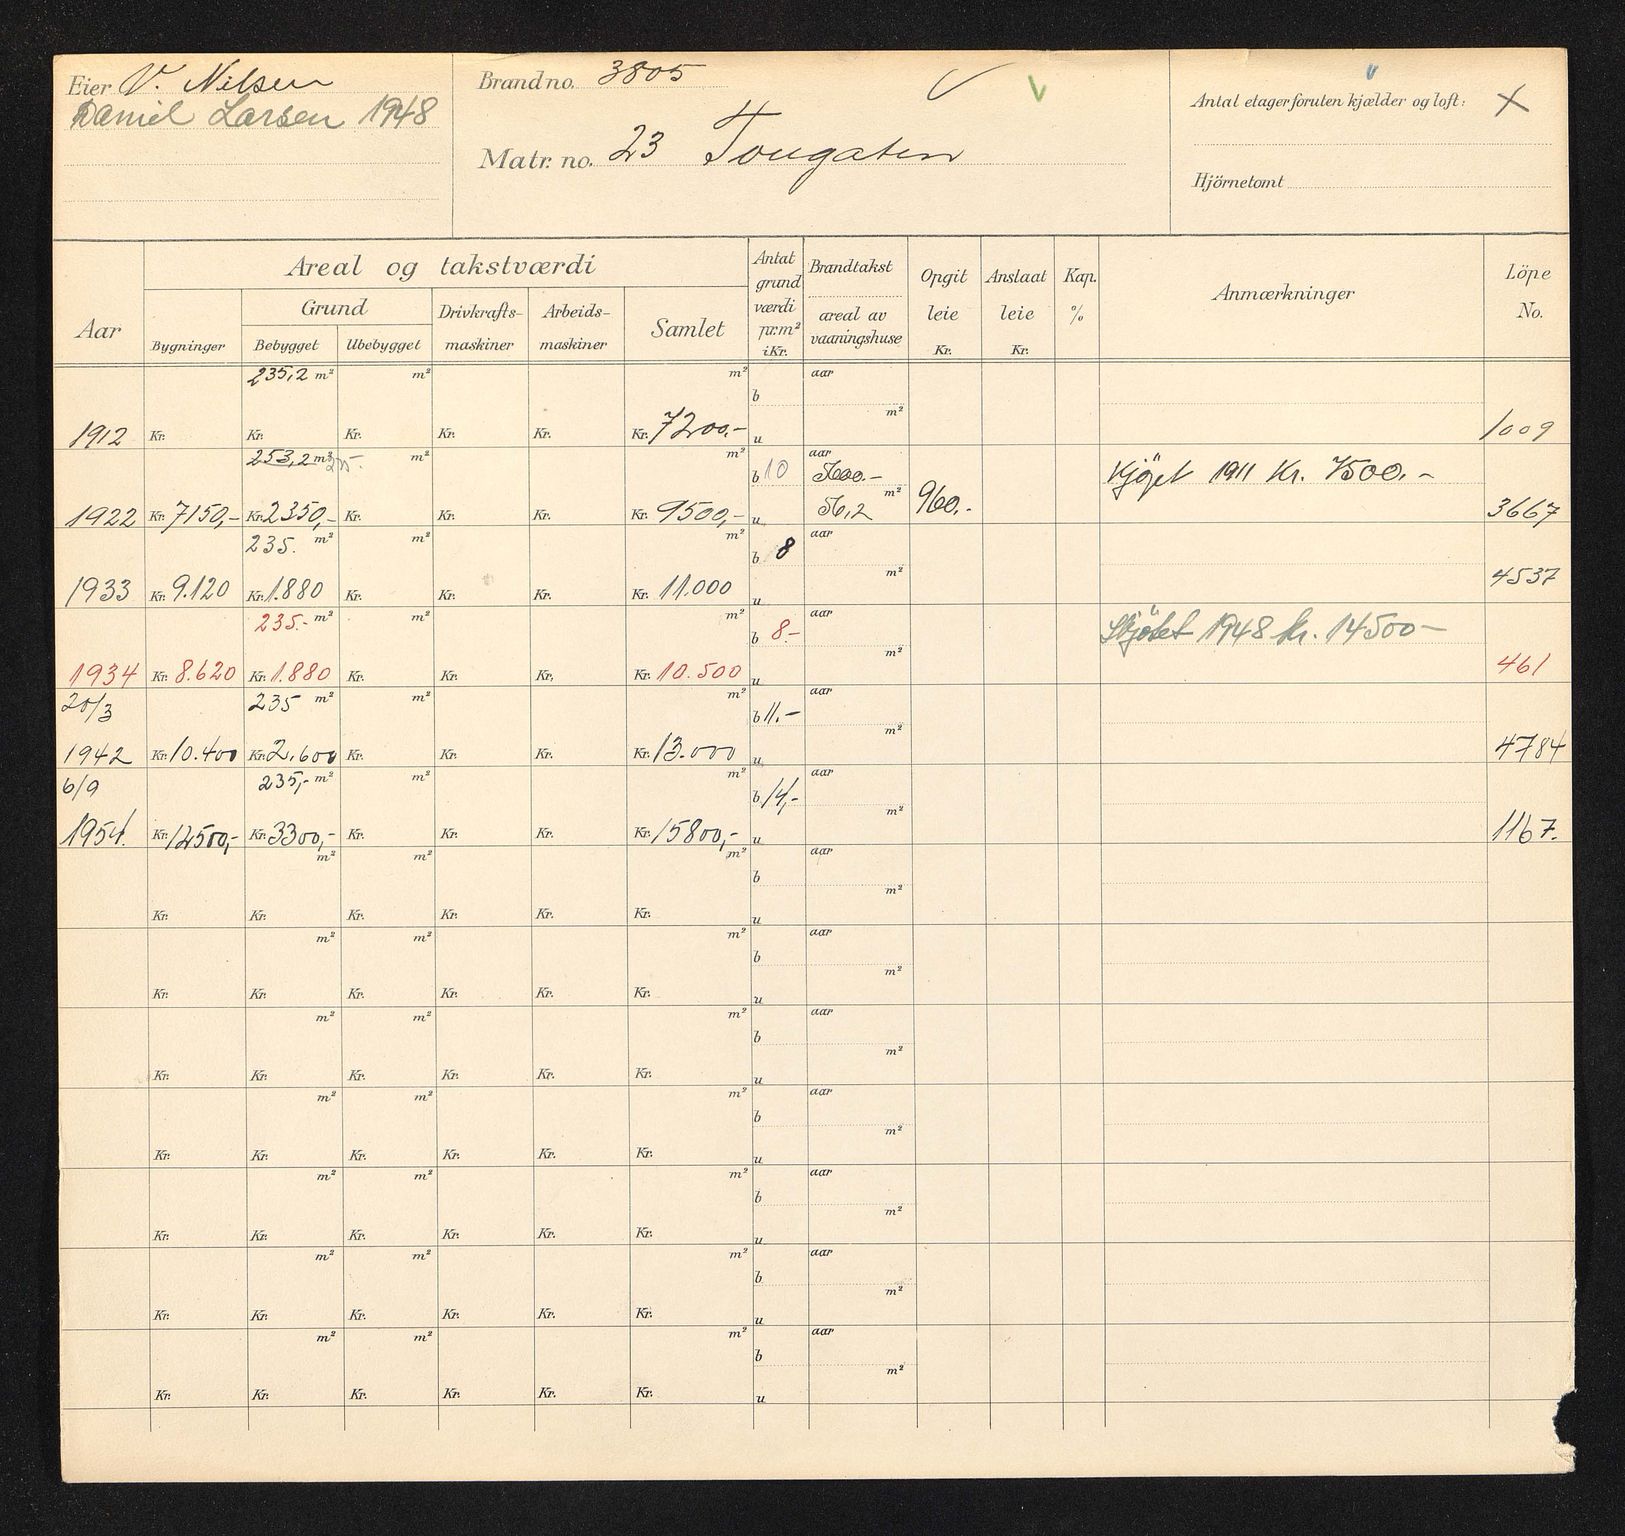 Eier V. Nilsen
Daniel Larsen 1948
Brandno. 3805
Matr. no. 23 Tougaten
Antal etager foruten kjælder og loft: X
Hjörnetomt
Aar
Areal og takstværdi
Bygninger
Grund
Bebygget Ubebygget
Drivkrafts-maskiner
Arbeids-maskiner
Samlet
Antat grund værdi pr.m² i Kr.
Brandtakst
areal av vaaningshuse
Opgit leie Kr.
Anslaat leie Kr.
Kap. %
Anmærkninger
Löpe No.
235,2 m² m² m² b aar m²
1912 Kr. Kr. Kr. Kr. Kr. Kr. 7200.- u 1009
253,2 m² 235. m² m² b 10 aar 5600.- Kjöpt 1911 Kr. 7500.-
1922 Kr. 7150,- Kr. 2350,- Kr. Kr. Kr. Kr. 9500,- u 56,2 m² 960.- 3667
235. m² m² m² b 8 aar m²
1933 Kr. 9.120 Kr. 1.880 Kr. Kr. Kr. Kr. 11.000 u 4537
235.- m² m² m² b 8.- aar m² Skjötet 1948 kr. 14500-
1934 Kr. 8.620 Kr. 1.880 Kr. Kr. Kr. Kr. 10.500 u 461
20/3 235 m² m² m² b 11.- aar m²
1942 Kr. 10.400 Kr. 2.600 Kr. Kr. Kr. Kr. 13.000 u 4784
6/9 235,- m² m² m² b 14,- aar m²
1954. Kr. 12500,- Kr. 3300,- Kr. Kr. Kr. Kr. 15800,- u 1167.
m² m² m² b aar m²
Kr. Kr. Kr. Kr. Kr. Kr. u
m² m² m² b aar m²
Kr. Kr. Kr. Kr. Kr. Kr. u
m² m² m² b aar m²
Kr. Kr. Kr. Kr. Kr. Kr. u
m² m² m² b aar m²
Kr. Kr. Kr. Kr. Kr. Kr. u
m² m² m² b aar m²
Kr. Kr. Kr. Kr. Kr. Kr. u
m² m² m² b aar m²
Kr. Kr. Kr. Kr. Kr. Kr. u
m² m² m² b aar m²
Kr. Kr. Kr. Kr. Kr. Kr. u